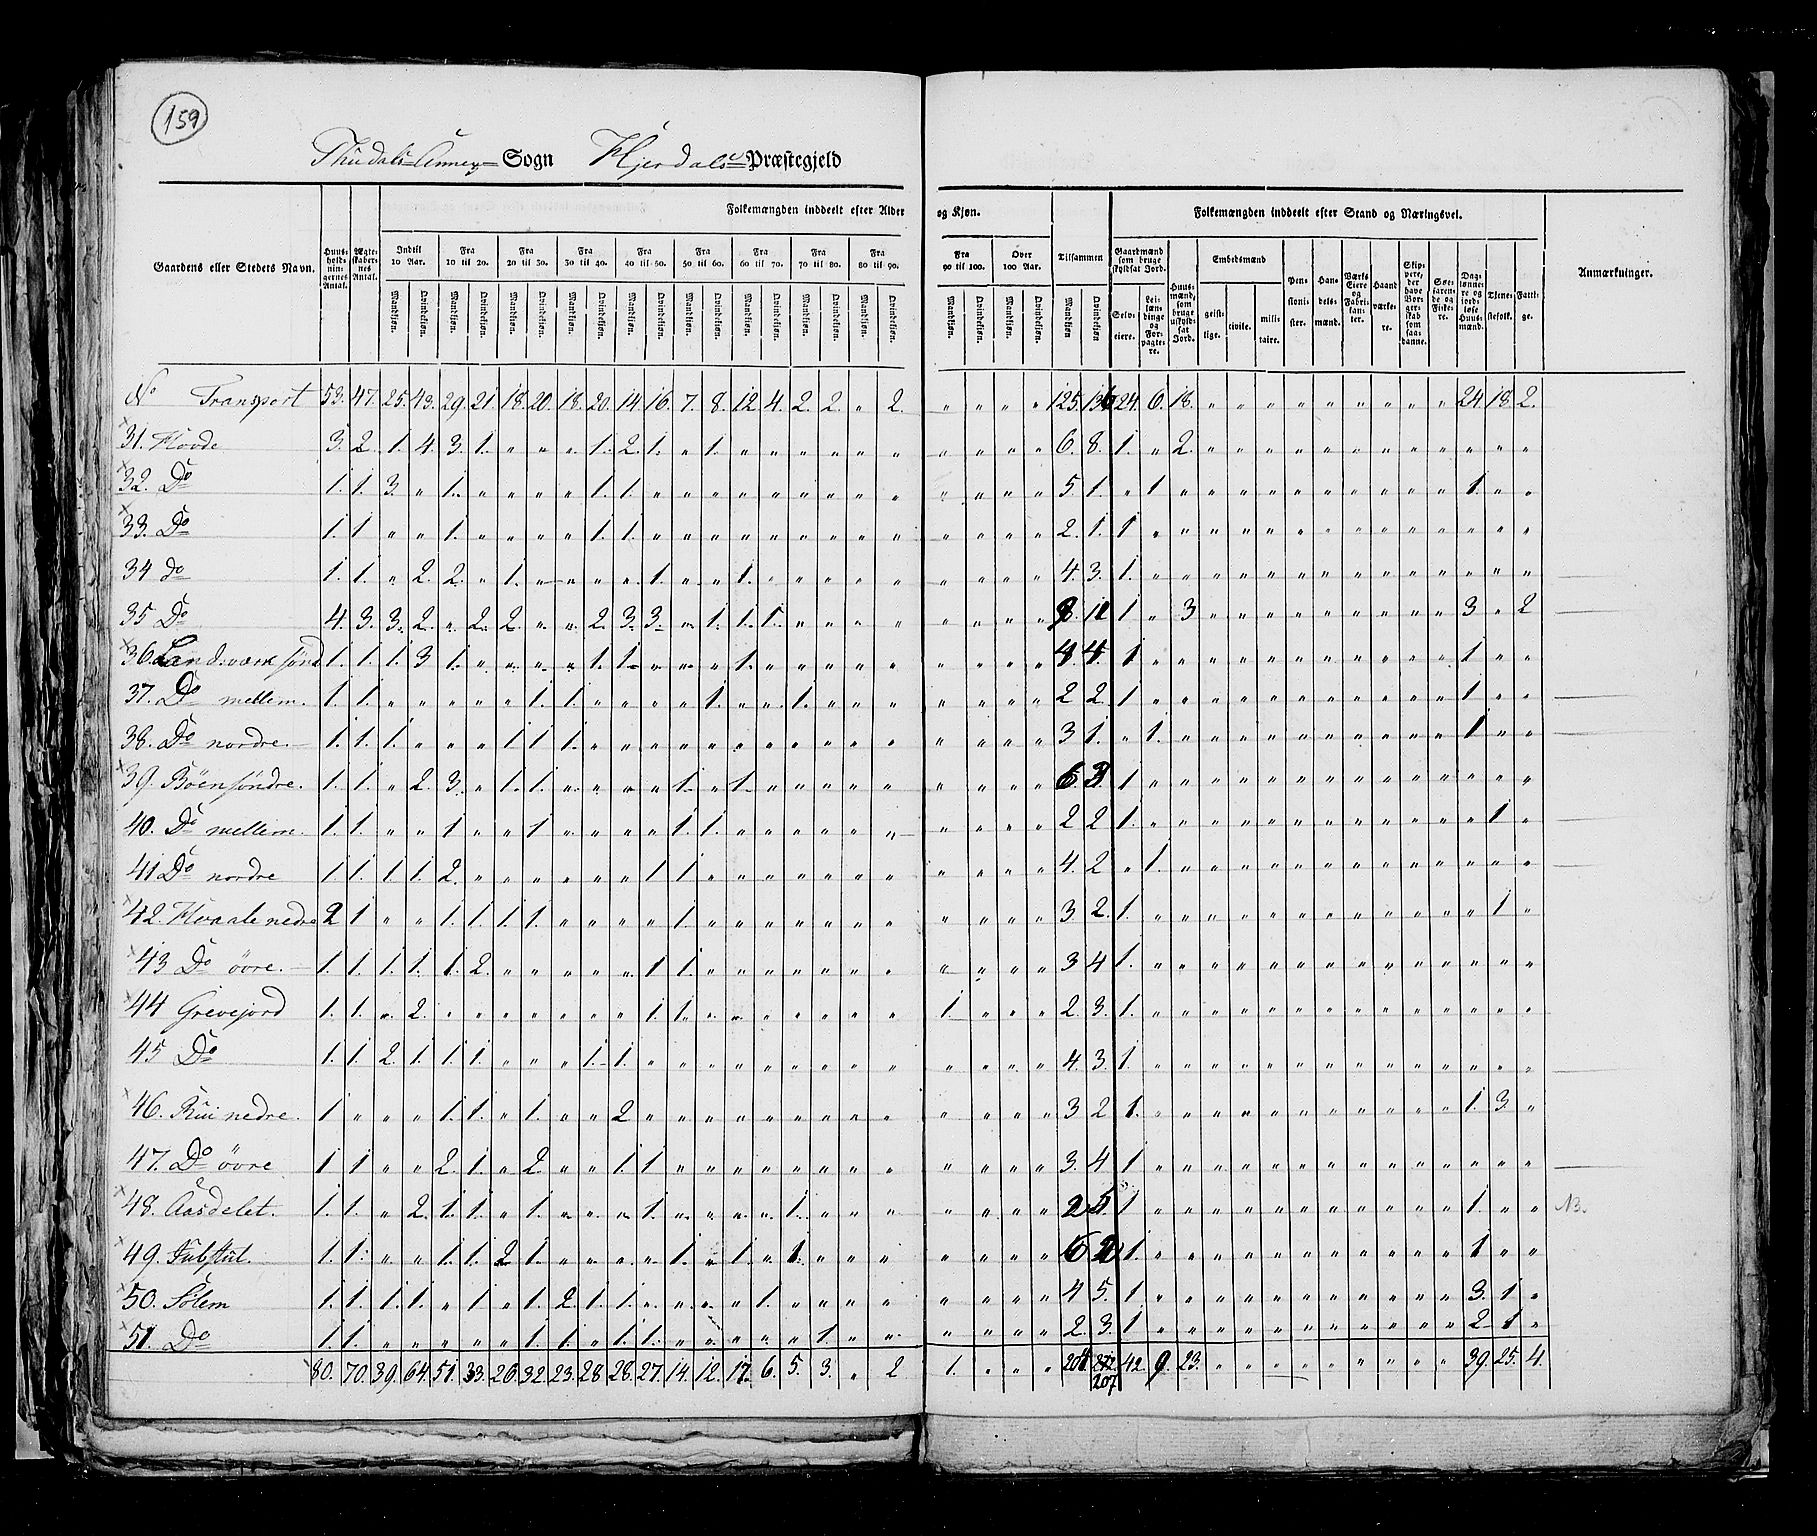 159
Thuddals Annex Sogn Hjerdals Præstegjeld
Folkemængden inddeelt efter Alder og Kjøn. Folkemængden inddeelt efter Stand og Næringsvei.
Gaardens eller Steders Navn. Huusholdningernes Antal. Ægteskabernes Antal. Indtil 10 Aar. Fra 10 til 20. Fra 20 til 30. Fra 30 til 40. Fra 40 til 50. Fra 50 til 60. Fra 60 til 70. Fra 70 til 80. Fra 80 til 90. Fra 90 til 100. Over 100 Aar. Tilsammen Gaardmænd som bruge skyldsat Jord. Huusmænd, som bruge uskyldsat Jord. Embedsmænd Pensionister. Handelsmænd. Værks Eiere og Fabrikanter. Haandværkere. Skippere, der have Borgerskab som saadanne. Søefarende og Fiskere. Daglønnere og jordløse Huusmænd. Tjenestefolk. Fattige. Anmærkninger.
Mandkjøn. Qvindekjøn. Mandkjøn. Qvindekjøn. Mandkjøn. Qvindekjøn. Mandkjøn. Qvindekjøn. Mandkjøn. Qvindekjøn. Mandkjøn. Qvindekjøn. Mandkjøn. Qvindekjøn. Mandkjøn. Qvindekjøn. Mandkjøn. Qvindekjøn. Mandkjøn. Qvindekjøn. Mandkjøn. Qvindekjøn. Mandkjøn Qvindekjøn. Selveiere. Leilændinge og Forpagtere. geistlige. civile. militaire.
No Transport 53. 47. 25. 43. 29. 21. 18. 20. 18. 20. 14. 16. 7. 8. 12. 4. 2. 2. " 2. " " " " 125. 136 24. 6. 18. " " " " " " " " " 24. 18. 2.
31. Hovde 3. 2. 1. 4. 3. 1. " " " 1. 2. 1. " 1. " " " " " " " " " " 6. 8. 1. " 2. " " " " " " " " " " " "
32. Do 1. 1. 3. " 1. " " " " 1. 1. " " " " " " " " " " " " " 5 1. " 1 " " " " " " " " " " 1. " "
33. Do 1. 1 " " 1. " " " " 1. 1. " " " " " " " " " " " " " 2. 1. 1 " " " " " " " " " " " " " "
34 do 1. 1. " 2. 2. " 1. " " " " 1. " " 1. " " " " " " " " " 4. 3. 1. " " " " " " " " " " " " " "
35 Do 4. 3. 3. 2. " 2. 2. " " 2. 3. 3. " 1. 1. 1. " " " " " " " " 9. 11 1 " 3 " " " " " " " " " 3 " 2
36. Landsværk sønd 1. 1. 1. 3 1. " " " " 1. 1. " " " 1. " " " " " " " " " 4. 4. 1 " " " " " " " " " " " 1 " "
37. Do mellem. 1. 1. " " " " " 1. 1. " " " " 1. " " 1. " " " " " " " 2 2. 1 " " " " " " " " " " " 1. " "
38. Do nordre. 1. 1. 1. " " " 1 1 1. " " " " " " " " " " " " " " " 3 1. " 1. " " " " " " " " " " 1 " "
39. Böen söndre. 1. 1. " 2. 3. " 1. 1. " " " " 1. " 1. " " " " " " " " " 6 3 1 " " " " " " " " " " " " " "
40. Do mellem. 1. 1. " " 1 " " 1 " " " " 1. 1. " " " " " " " " " " 2 2 1. " " " " " " " " " " " " 1 "
41 Do nordre 1 1. 1. 1. 2. " " " " " " 1 1. " " " " " " " " " " " 4. 2 " 1 " " " " " " " " " " " " "
42. Hvaale nedre 2 1 " " 1. 1. 1 1. " " " " 1. " " " " " " " " " " " 3. 2. 1. " " " " " " " " " " " " 1 "
43 Do övre. 1. 1. 1. 1. 1. 2. " " " " " 1 1. " " " " " " " " " " " 3 4 1. " " " " " " " " " " " " " "
44 Grevejord 1. 1. " 2. " " " " " " " 1. 1. " " " " " " " 1. " " " 2. 3. 1. " " " " " " " " " " " " " "
45 Do 1. 1. 2. 1. 1. 1. " " " 1. 1. " " " " " " " " " " " " " 4. 3. 1 " " " " " " " " " " " " " "
46. Rui nedre. 1 " " " 1. 1. " 1. " " 2 " " " " " " " " " " " " " 3 2 1. " " " " " " " " " " " 1. 3. "
47. Do övre 1 1 " " 2. 1. " 2. " " 1. 1. " " " " " " " " " " " " 3. 4 1 " " " " " " " " " " " " " "
48. Aasdelet. 1. 1. " 2. 1. 1. " 1. " " " 1. " " " " 1. " " " " " " " 2 5 1 " " " " " " " " " " " 1. " " NB.
49. 1. 1. " " 1. 1. 2 1. " " " " 1. " 1. " 1. " " " " " " " 6 2 1. " " " " " " " " " " " 1 " "
50. Solem 1. 1. 1. 1. " 1. " 1. 2. 1. 1. " " " " 1. " " " " " " " " 4 5. 1. " " " " " " " " " " " 3. 1 "
51. Do 1. 1. " " " " " 1. 1. " 1. 1. " " " " " 1. " " " " " " 2. 3. 1 " " " " " " " " " " " 2 1 "
80. 70. 39. 64. 51. 33. 26. 32. 23. 28. 28. 27. 14. 12. 17. 6. 5. 3. " 2 1. " " " 204 42. 9. 23. " " " " " " " " " 39. 25. 4.
207